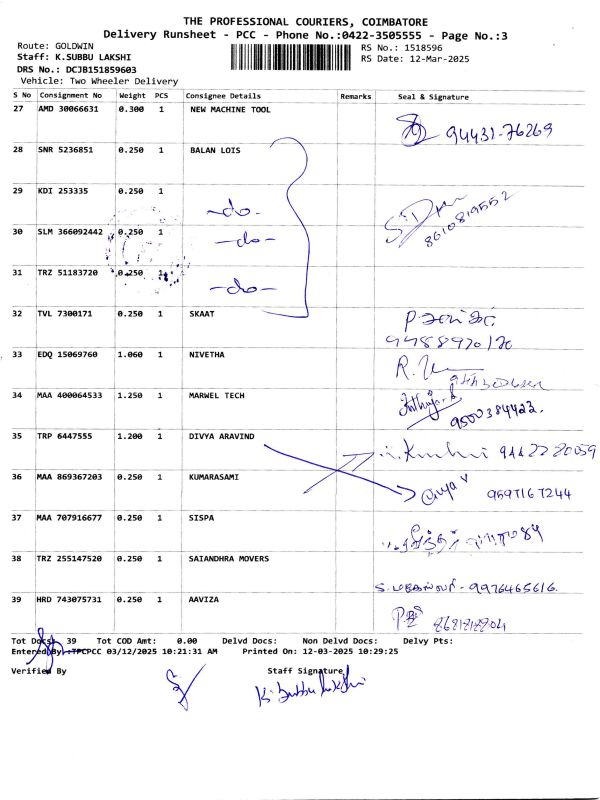 THE PROFESSIONAL COURIERS, COIMBATORE
Delivery Runsheet - PCC - Phone No.:0422-3505555 - Page No.:3
Route: GOLDWIN
Staff: K.SUBBU LAKSHI
DRS No.: DCJB151859603
Vehicle: Two Wheeler Delivery
RS No.: 1518596
RS Date: 12-Mar-2025
S No Consignment No Weight PCS Consignee Details Remarks Seal & Signature
27 AMD 30066631 0.300 1 NEW MACHINE TOOL 94431-76269
28 SNR 5236851 0.250 1 BALAN LOIS
29 KDI 253335 0.250 1 -do- 8610819552
30 SLM 366092442 0.250 1 -do-
31 TRZ 51183720 0.250 1 -do-
32 TVL 7300171 0.250 1 SKAAT
33 EDQ 15069760 1.060 1 NIVETHA
34 MAA 400064533 1.250 1 MARWEL TECH 9500384422.
35 TRP 6447555 1.200 1 DIVYA ARAVIND
36 MAA 869367203 0.250 1 KUMARASAMI 9597167244
37 MAA 707916677 0.250 1 SISPA
38 TRZ 255147520 0.250 1 SAIANDHRA MOVERS 9976465616.
39 HRD 743075731 0.250 1 AAVIZA
Tot Docs: 39 Tot COD Amt: 0.00 Delvd Docs: Non Delvd Docs: Delvy Pts:
Entered By :TPCPCC 03/12/2025 10:21:31 AM Printed On: 12-03-2025 10:29:25
Verified By Staff Signature
K. Subbu lakshi